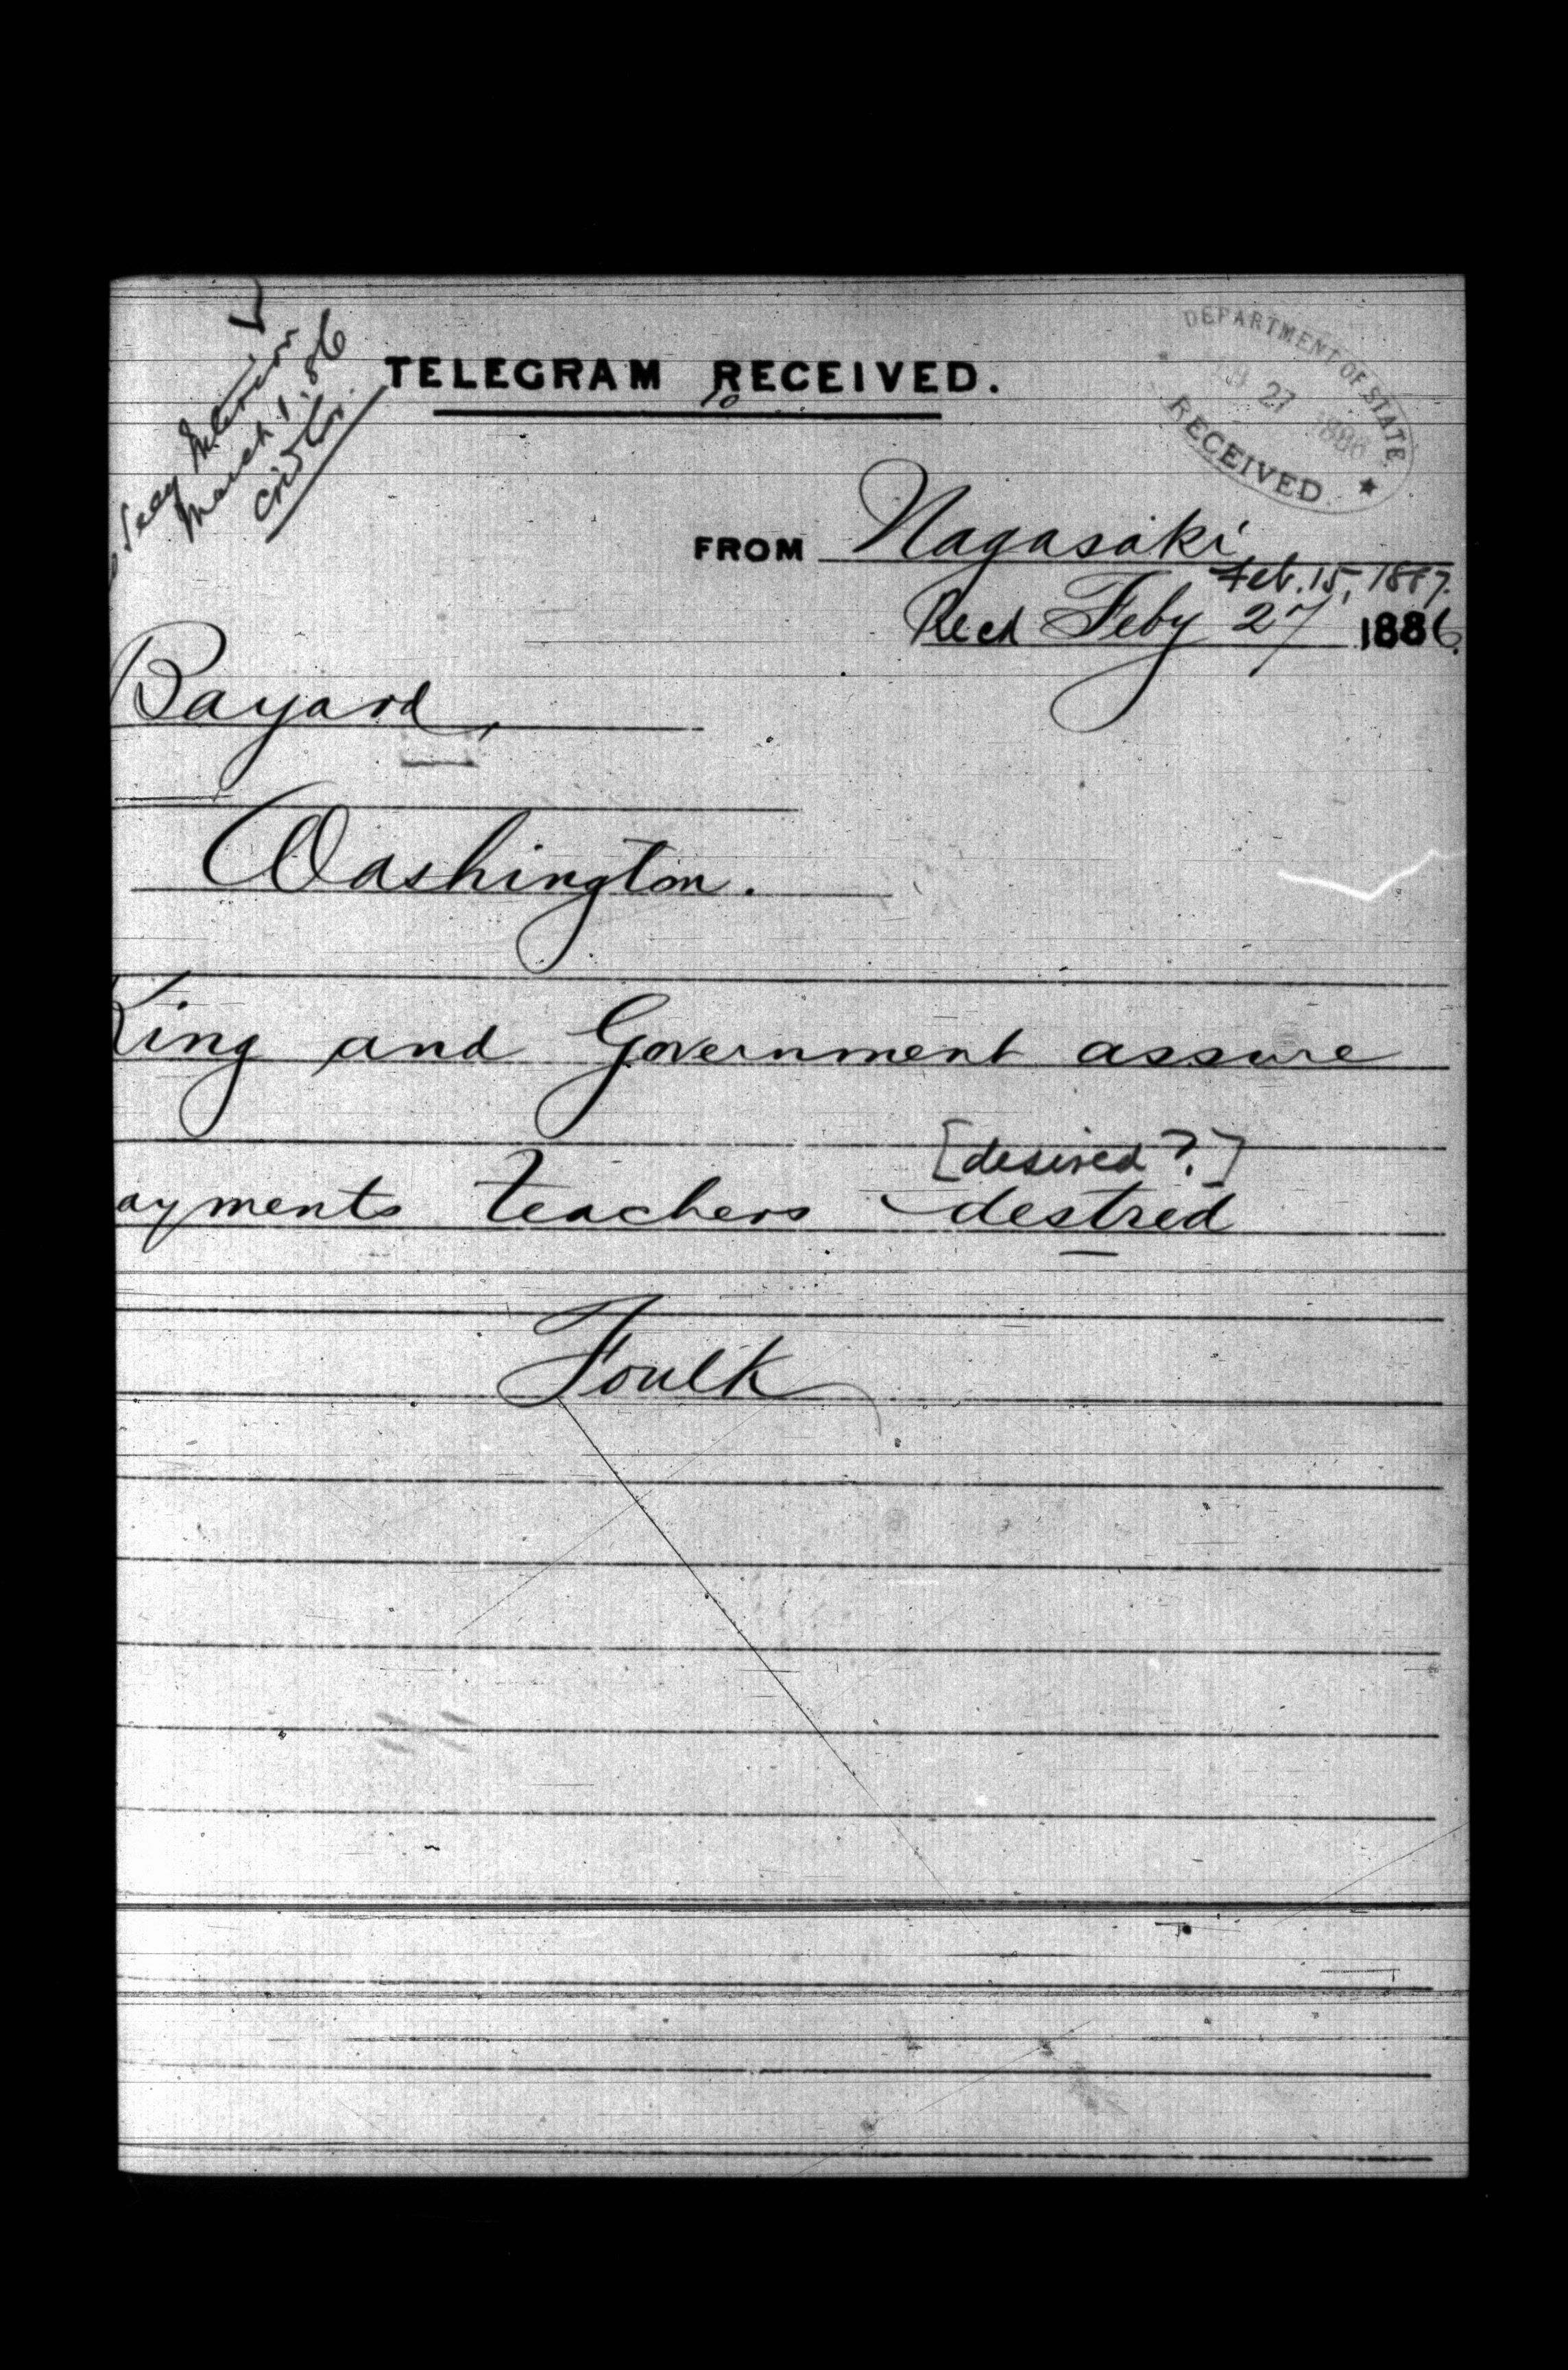 Secy Interior
March 1. 86
TELEGRAM RECEIVED.
10
DEPARTMENT OF STATE.
27 1886
RECEIVED
FROM Nagasaki
Feb. 15, 1887.
Recd Feby 27 1886.
Bayard,
Washington.
King and Government assure
[desired?]
ayments teachers destred
Foulk